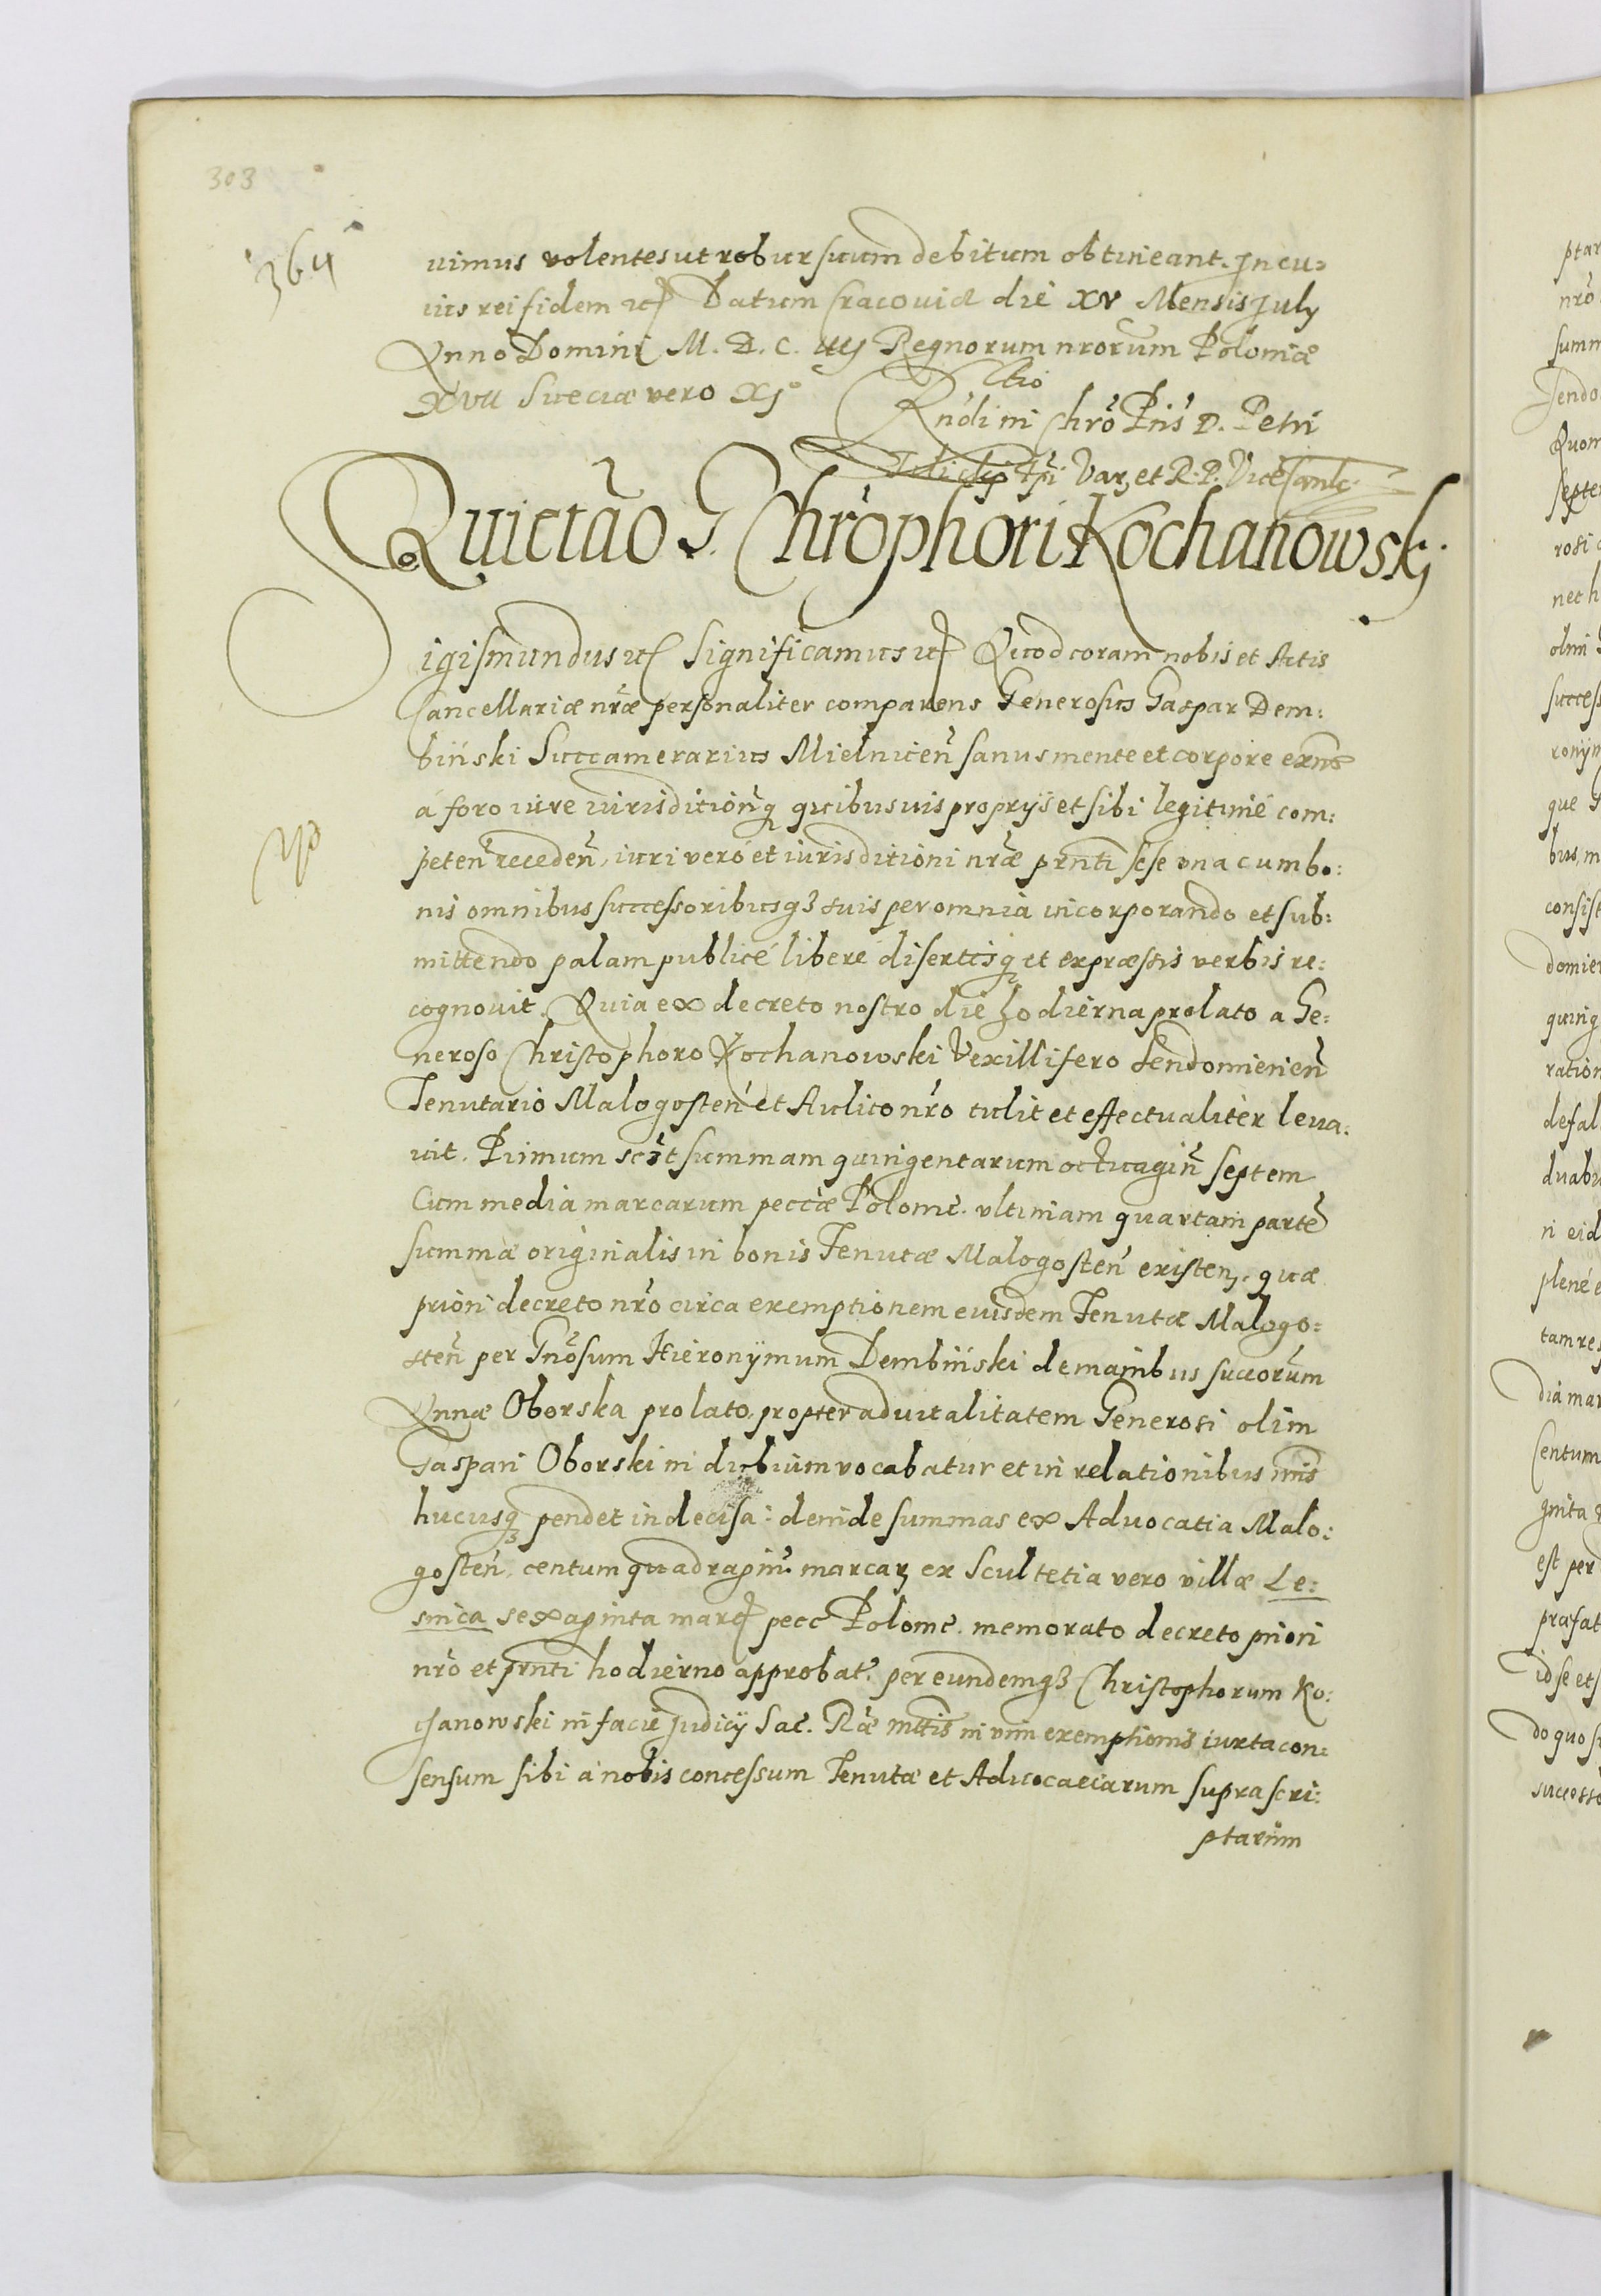 303
364
uimus volentes ut robur suum debitum obtineant. In cu:
ius rei fidem etc Datum Cracoviæ die XV Mensis July
Anno Domini M. D. C. IIIJ Regnorum nrorum Poloniæ
XVII Sueciæ vero XJ°
Rndi in Chro Pris D. Petri
Epi Var. et R. P. Vicecanlc.
Quictao G. Chrophori Kochanowskj
Sigismundus etc Significamus etc Quod coram nobis et Actis
Cancellariæ nræ personaliter comparens Generosus Gaspar Dem:
biński Succamerarius Mielnicen sanus mente et corpore exns
á foro iure iurisdictionq quibusuis proprijs et sibi legitimé com:
peten receden, iuri veró et iurisditioni nræ prnti sese vna cum bo:
nis omnibus successoribusq3 suis per omnia incorporando et sub:
mittendo palam publicé liberé disertisq et expræssis verbis re:
cognouit. Quia ex decreto nostro die hodierna prolato a Ge:
neroso Christophoro Kochanowski Vexillifero Sendomirien
Tenutario Malogosten et Aulico nro tulit et effectualiter leua:
uit. Primum scit summam quingentarum octuagin septem
Cum media marcarum peccæ Polonc. vltimam quartam parte
summæ originalis in bonis Tenutæ Malogosten existen, quæ
priori decreto nro circa exemptionem eiusdem Tenutæ Malogo:
sten per Gnosum Hieronymum Dembiński de manibus succorum
Annæ Oborska prolato, propter aduitalitatem Generosi olim
Gaspari Oborski in dubium vocabatur et in relationibus nris
hucusq3 pendet indecisa: deinde summas ex Aduocatia Malo:
gosten, centum quadragin marcar ex Scultetia vero villæ Le:
snica sexaginta marc pecc Polonc. memorato decreto priori
nro et prnti hodierno approbat, per eundemq3 Christophorum Ko:
chanowski in facie Judicij Sac. Ræ Mttis in vim exemptionis iuxta con:
sensum sibi á nobis concessum Tenutæ et Aduocatiarum suprascri:
ptarum